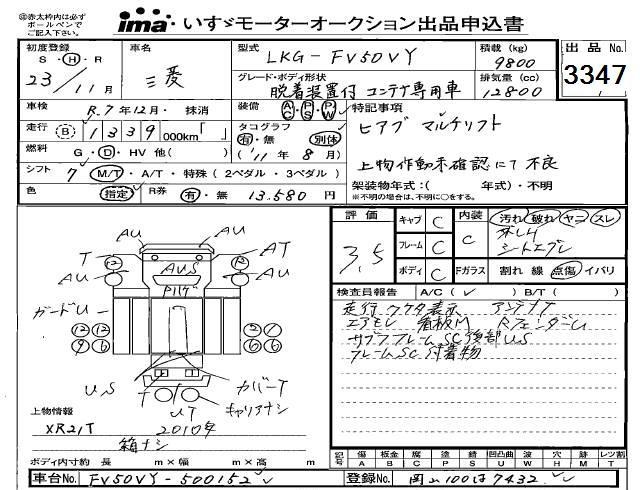 ㊟赤太枠内は必ず
ボールペンで
ご記入下さい。
ima いすゞモーターオークション出品申込書
初度登録 S・H・R 23/11月
車名 三菱
型式 LKG-FV50VY
積載 (kg) 9800
出品 No. 3347
グレード・ボディ形状 脱着装置付 コンテナ専用車
排気量 (cc) 12800
車検 R.7年12月・抹消
装備 AC・PS・PW
特記事項
走行 B 1339 000km「 」
タコグラフ 有・無 別体
'11年8月
ヒアブ マルチリフト
燃料 G・D・HV 他( )
シフト 7 M/T・A/T・特殊(2ペダル・3ペダル)
上物作動未確認にて不良
色 指定 R券 有・無 13.580円
架装物年式:( 年式)・不明
※不明の場合は、不明に○をする。
評価 3.5
キャブ C
フレーム C
ボディ C
内装 C
汚れ 破れ ヤニ スレ
シートエグレ
Fガラス 割れ 線 点傷 イバリ
検査員報告 A/C( ✓ ) B/T( )
エアモレ 看板M RフェンダーU
サブフレームSC後部US
フレームSC付着物
AU AU
T AT
AU AUS AU
ガードU
US
カバーT
UT キャリアナシ
上物情報
XR21T 2010年
箱ナシ
ボディ内寸約 長 m×幅 m×高 m
記号 傷A 板金B 腐C 塗P 錆S 凹凸曲U 波W 穴H 跡M レツ割T
車台No. FV50VY-500152
登録No. 岡山100は7432